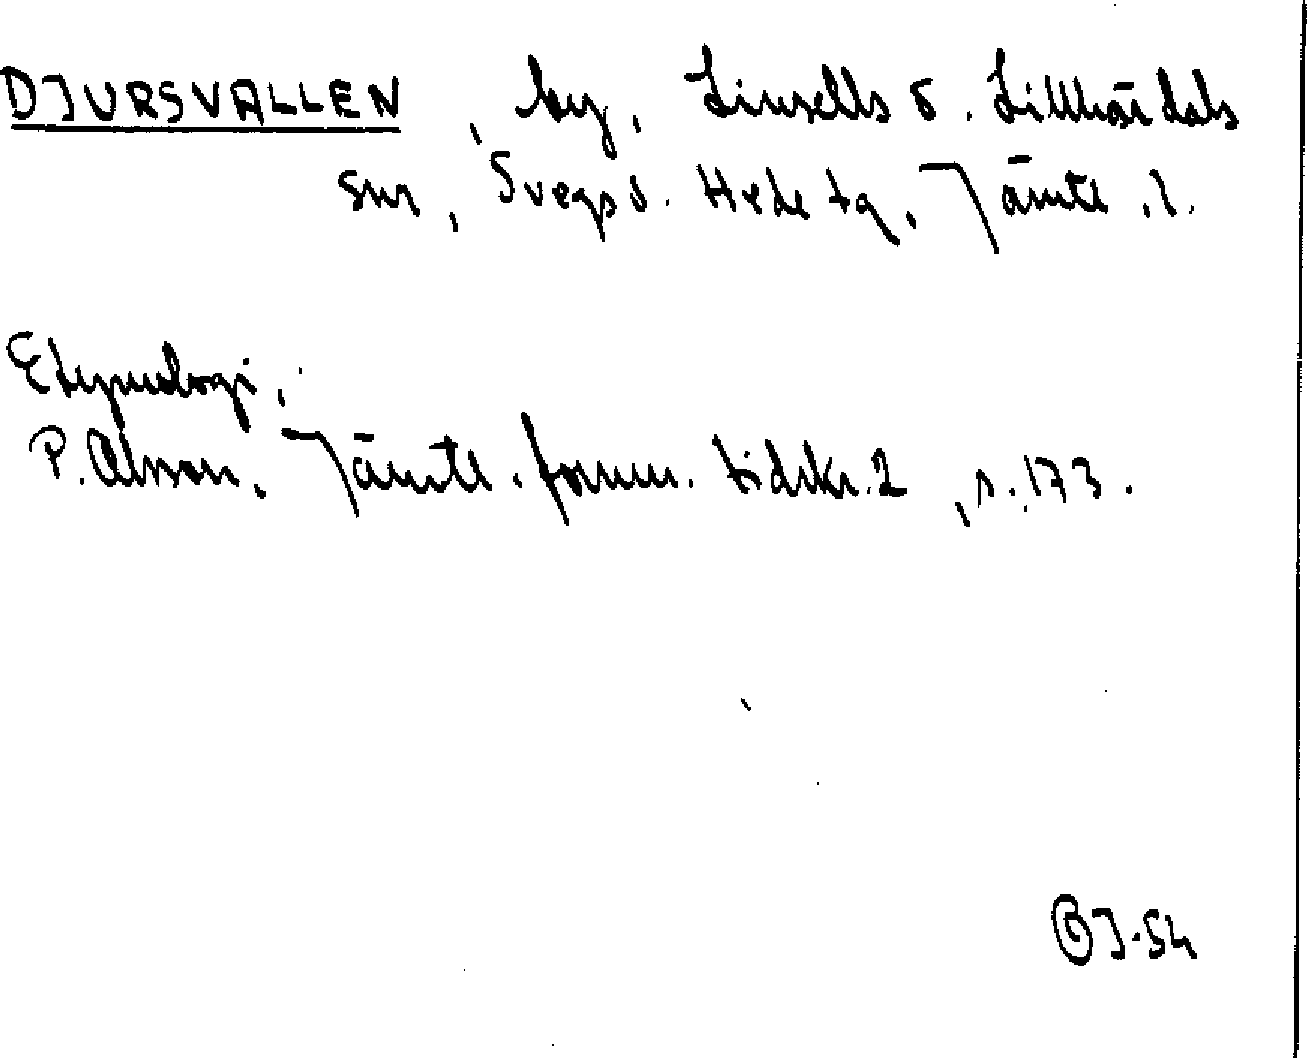 DJURSVALLEN, by, Linsells o. Lillhärdals
snr, Svegs o. Hede tg, Jämtl. l.
Etymologi,
P. Olsson, Jämtl. fornm. tidskr. 2, s. 173.
J-54